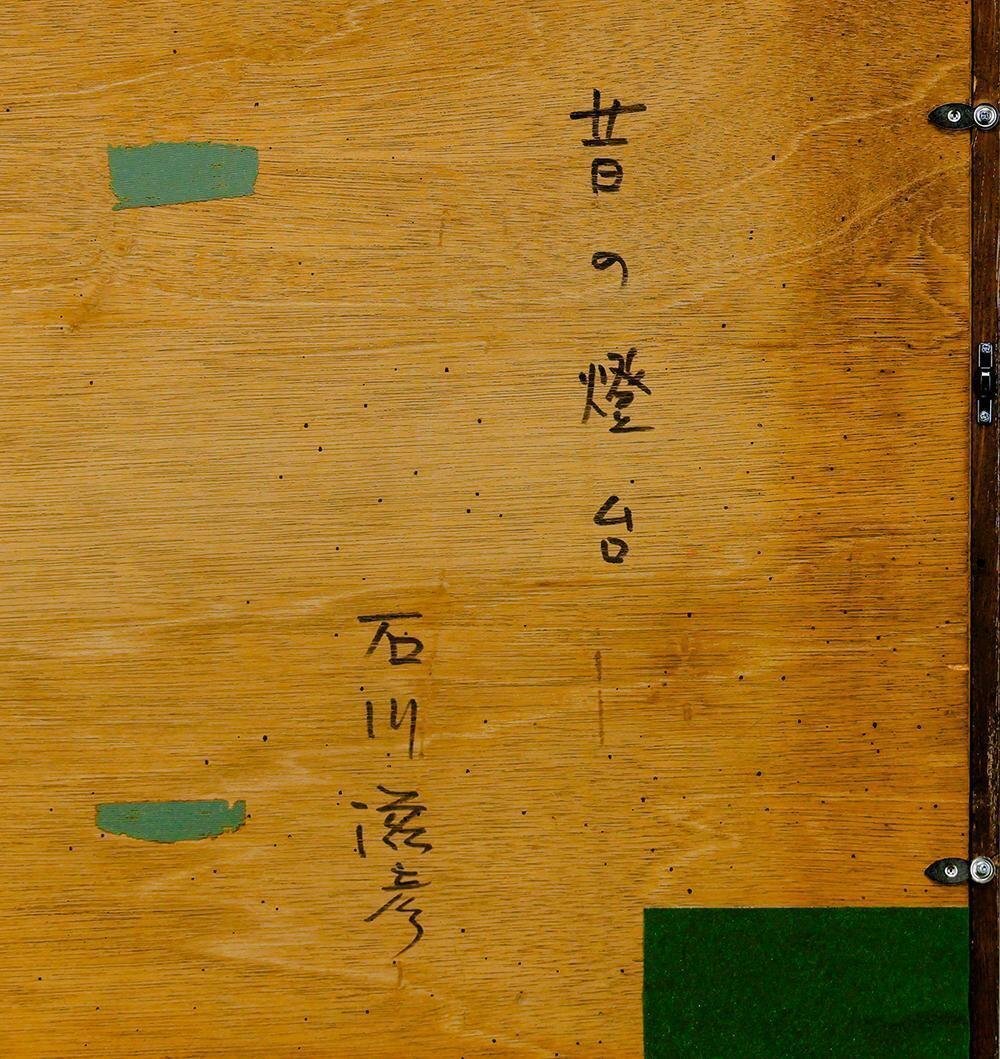 昔の燈台
石川滋彦